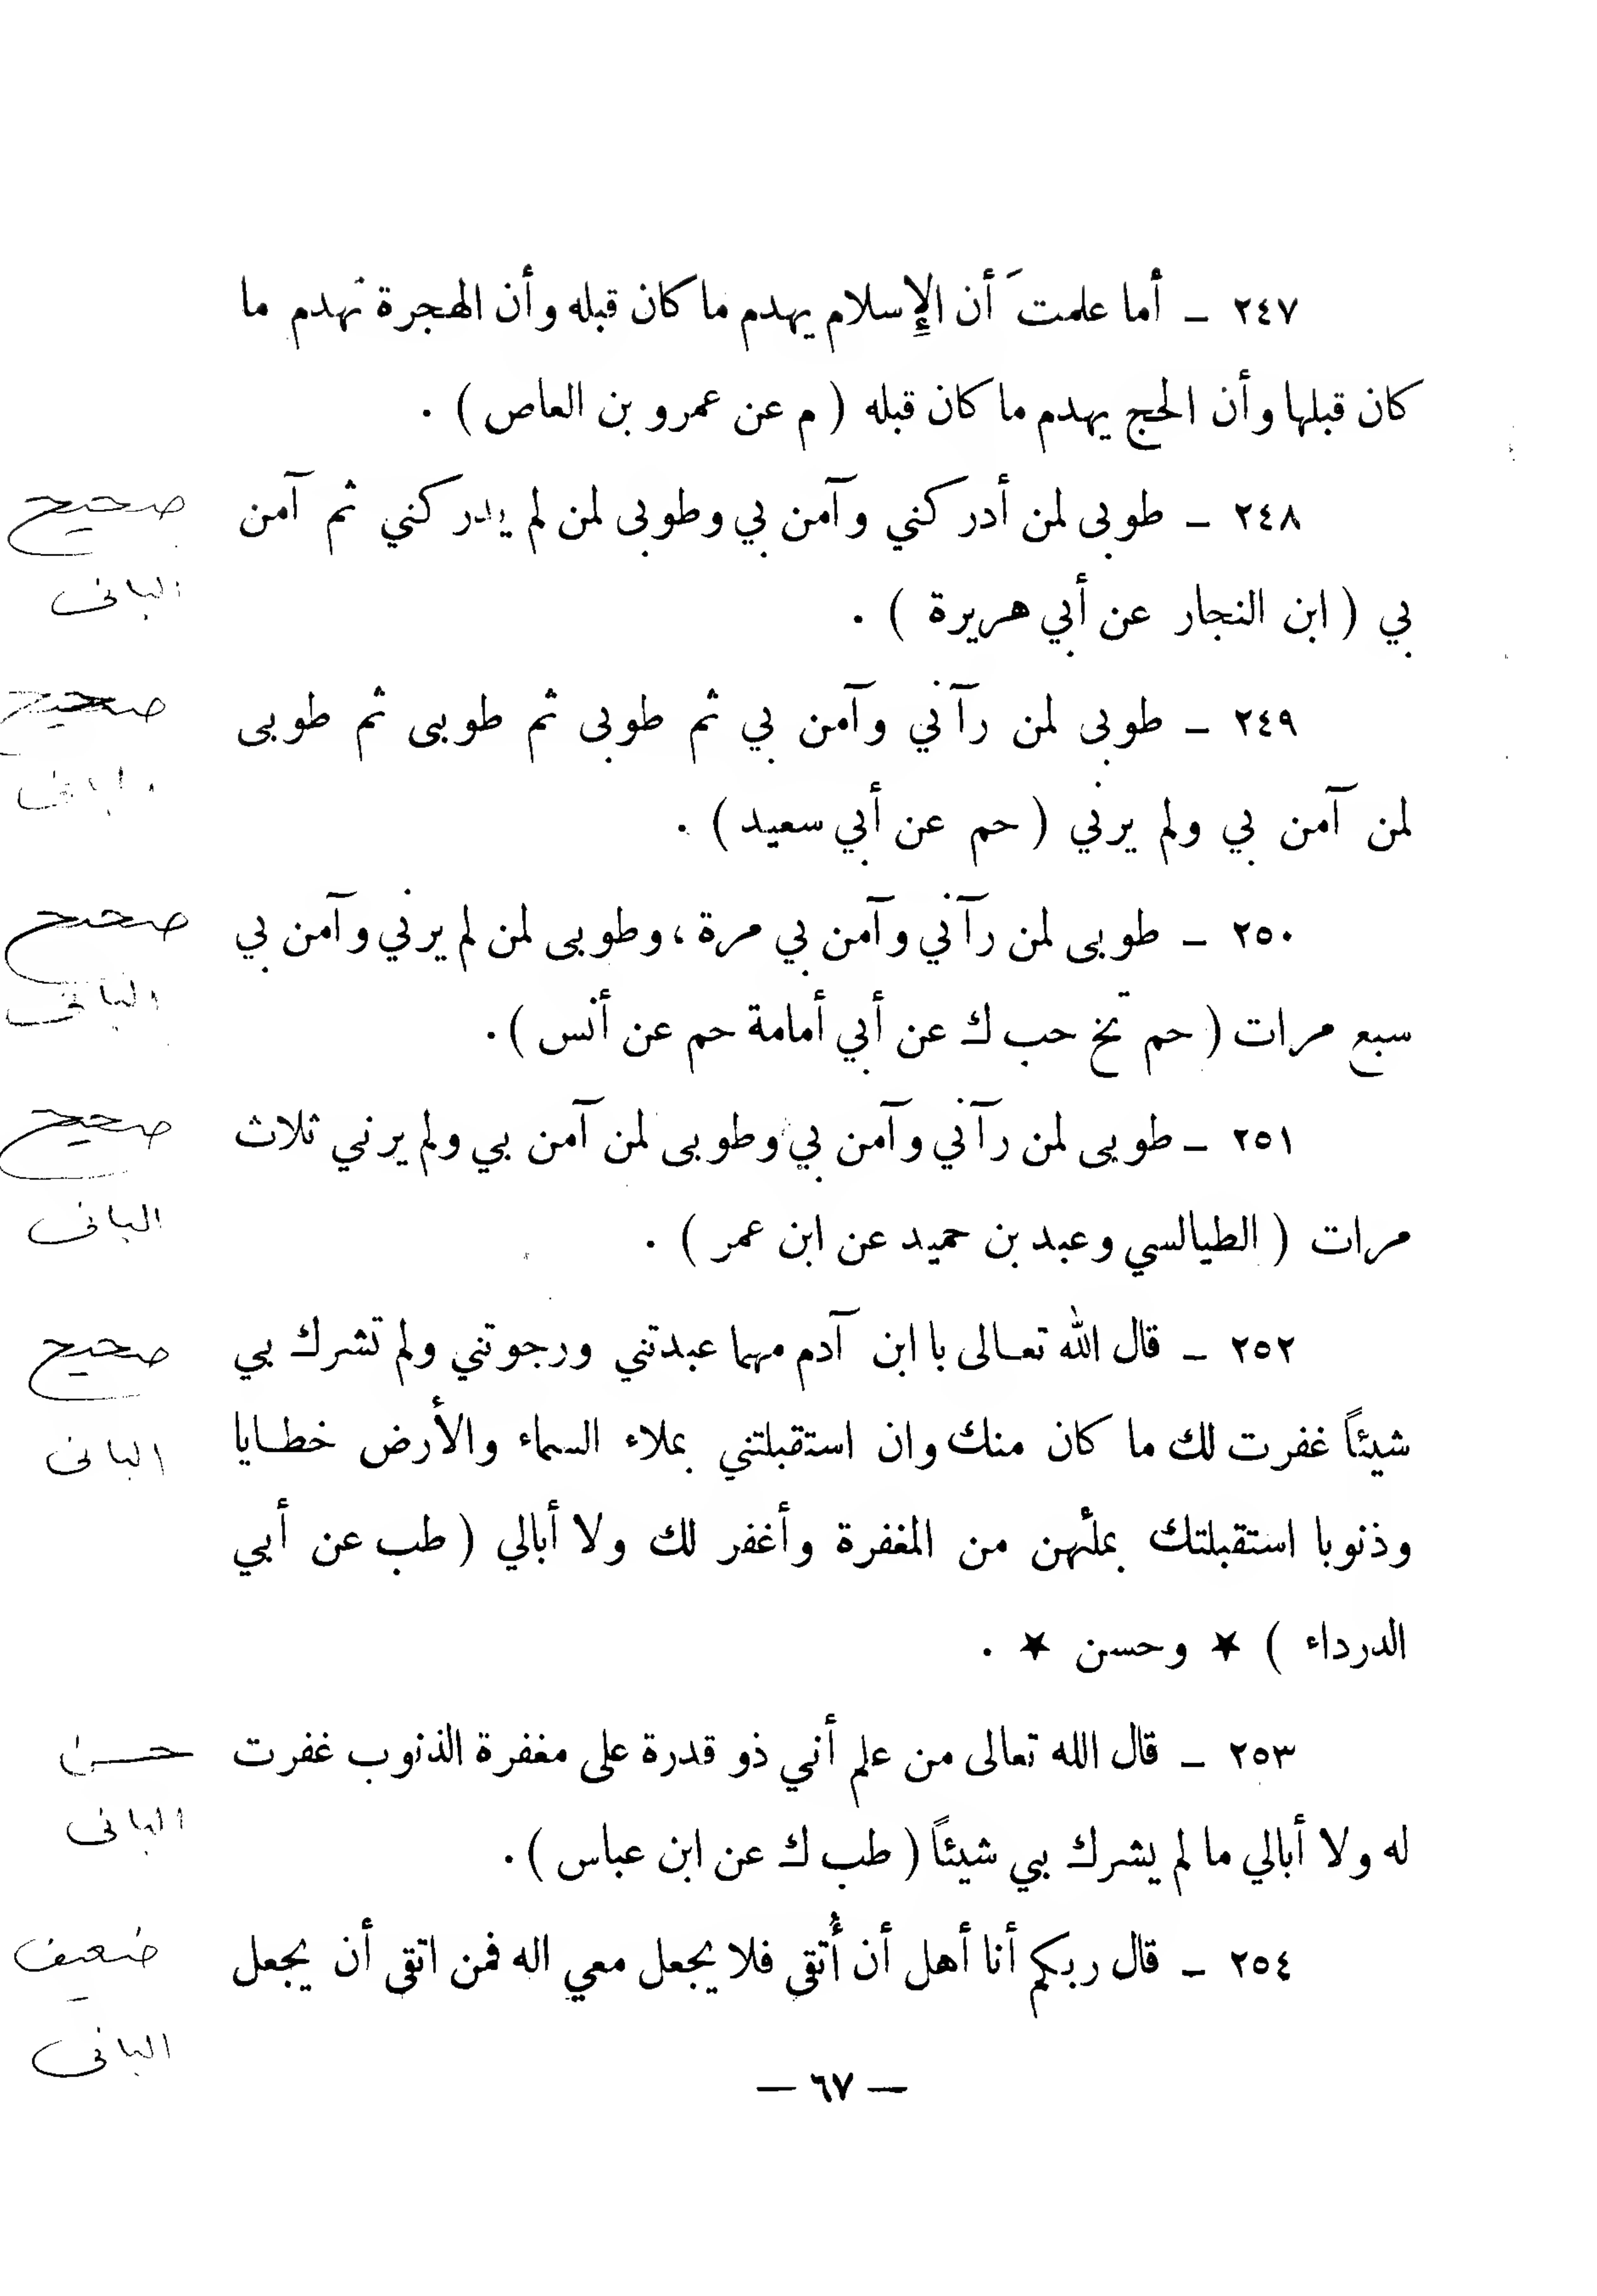 ٢٤٧ ـ أما علمتَ أن الإسلام يهدم ما كان قبله وأن الهجرة تهدم ما
كان قبلها وأن الحج يهدم ما كان قبله ( م عن عمرو بن العاص ) .
٢٤٨ ـ طوبى لمن أدركني وآمن بي وطوبى لمن لم يدركني ثم آمن
صحيح
الباني
بي ( ابن النجار عن أبي هريرة ) .
٢٤٩ ـ طوبى لمن رآني وآمن بي ثم طوبى ثم طوبى ثم طوبى
صحيح
لمن آمن بي ولم يرني ( حم عن أبي سعيد ) .
٢٥٠ ـ طوبى لمن رآني وآمن بي مرة ، وطوبى لمن لم يرني وآمن بي
صحيح
الباني
سبع مرات ( حم تخ حب ك عن أبي أمامة حم عن أنس ) .
٢٥١ ـ طوبى لمن رآني وآمن بي وطوبى لمن آمن بي ولم يرني ثلاث
صحيح
الباني
مرات ( الطيالسي وعبد بن حميد عن ابن عمر ) .
٢٥٢ ـ قال الله تعالى يا ابن آدم مهما عبدتني ورجوتني ولم تشرك بي
صحيح
شيئاً غفرت لك ما كان منك وان استقبلتني بملاء السماء والأرض خطايا
الباني
وذنوبا استقبلتك بملئهن من المغفرة وأغفر لك ولا أبالي ( طب عن أبي
الدرداء ) ★ وحسن ★ .
٢٥٣ ـ قال الله تعالى من علم أني ذو قدرة على مغفرة الذنوب غفرت
حسن
الباني
له ولا أبالي ما لم يشرك بي شيئاً ( طب ك عن ابن عباس ) .
٢٥٤ ـ قال ربكم أنا أهل أن أُتقى فلا يجعل معي اله فمن اتقى أن يجعل
ضعيف
الباني
— ٦٧ —